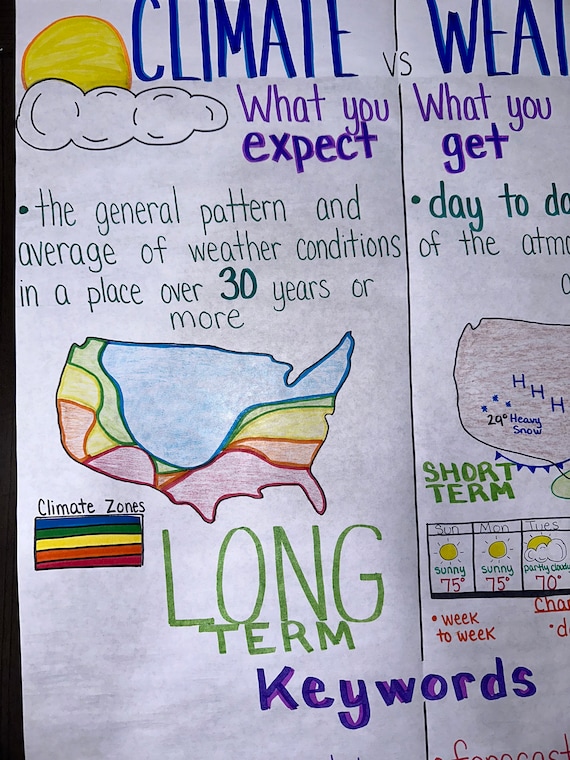 CLIMATE vs WEAT
What you
expect
• the general pattern and
average of weather conditions
in a place over 30 years or
more
Climate Zones
LONG
TERM
What you
get
• day to da
of the atmo
H H H
29° Heavy
Snow
SHORT
TERM
Sun Mon Tues
sunny sunny partly cloudy
75° 75° 70°
Cha
• week
to week
• d
Keywords
• forecast